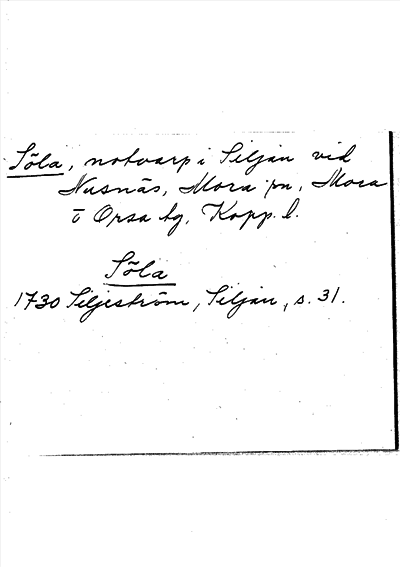 Söla, notvarp i Siljan vid
Nusnäs, Mora sn, Mora
o Orsa tg, Kopp. l.
Söla
1730 Siljeström, Siljan, s. 31.